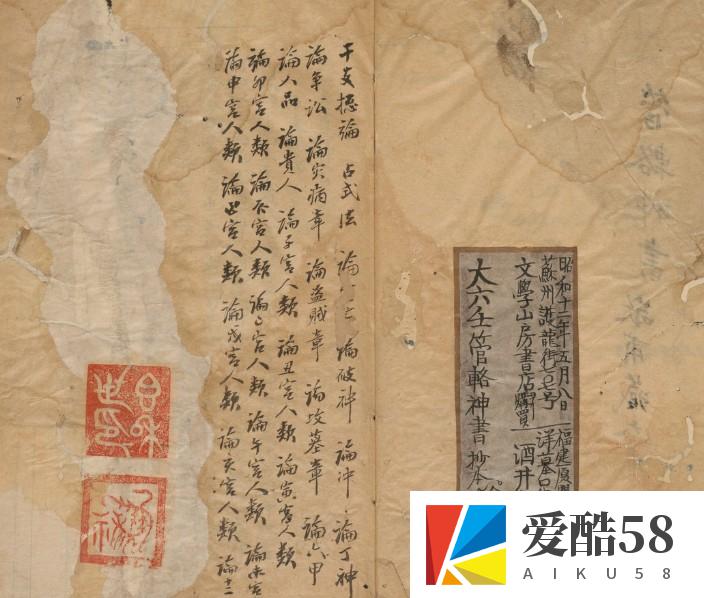 干支捴論 占式法 論 論破神 論沖 論丁神
論爭訟 論災病章 論盜賊章 論坟墓章 論六甲
論人品 論貴人 論子宮人類 論丑宮人類 論寅宮人類
論卯宮人類 論辰宮人類 論巳宮人類 論午宮人類 論未宮
論申宮人類 論酉宮人類 論戌宮人類 論亥宮人類 論十二
管輅神書
昭和十二年五月八日
蘇州護龍街 号
文學山房書店購買
福建厦門
洋墓口
酒井
大六壬管輅神書抄本
爱酷58
AIKU58